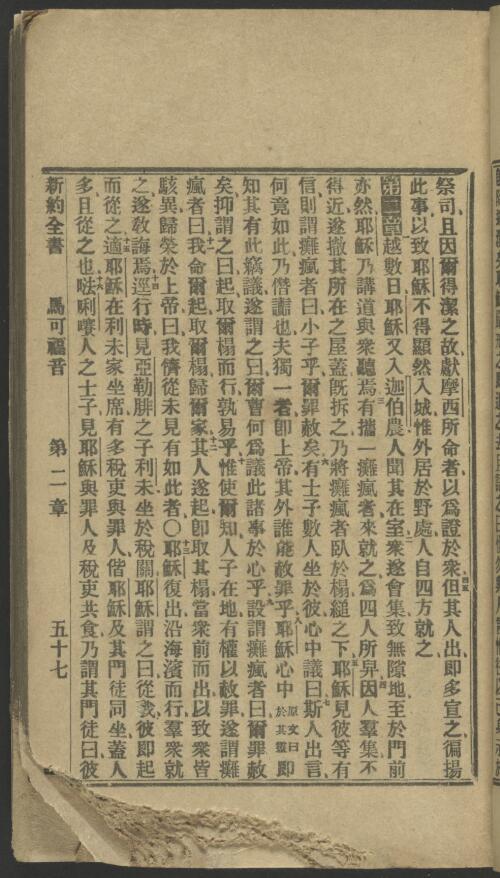 祭司、且因爾得潔之故、獻摩西所命者、以爲證於衆、但其人出、卽多宣之、徧揚
此事、以致耶穌不得顯然入城、惟外居於野處、人自四方就之、
第二章越數日、耶穌又入迦伯農、人聞其在室、衆遂會集、致無隙地、至於門前
亦然、耶穌乃講道與衆聽焉、有攜一癱瘋者來就之、爲四人所舁、因人羣集、不
得近、遂撤其所在之屋蓋、旣拆之、乃將癱瘋者臥於榻縋之下、耶穌見彼等有
信、則謂癱瘋者曰、小子乎、爾罪赦矣、有士子數人坐於彼、心中議曰、斯人出言、
何竟如此、乃僭讟也、夫獨一者、卽上帝、其外誰能赦罪乎、耶穌心中原文曰於其靈卽
知其有此竊議、遂謂之曰、爾曹何爲議此諸事於心乎、設謂癱瘋者曰、爾罪赦
矣、抑謂之曰、起取爾榻而行、孰易乎、惟使爾知人子在地有權以赦罪、遂謂癱
瘋者曰、我命爾起、取爾榻歸爾家、其人遂起、卽取其榻、當衆前而出、以致衆皆
駭異、歸榮於上帝曰、我儕從未見有如此者〇耶穌復出、沿海濱而行、羣衆就
之、遂敎誨焉、逕行時、見亞勒腓之子利未坐於稅關、耶穌謂之曰、從我、彼卽起
而從之、適耶穌在利未家坐席、有多稅吏與罪人、偕耶穌及其門徒同坐、蓋人
多、且從之也、𠵽唎㘔人之士子、見耶穌與罪人及稅吏共食、乃謂其門徒曰、彼
新約全書 馬可福音 第二章 五十七